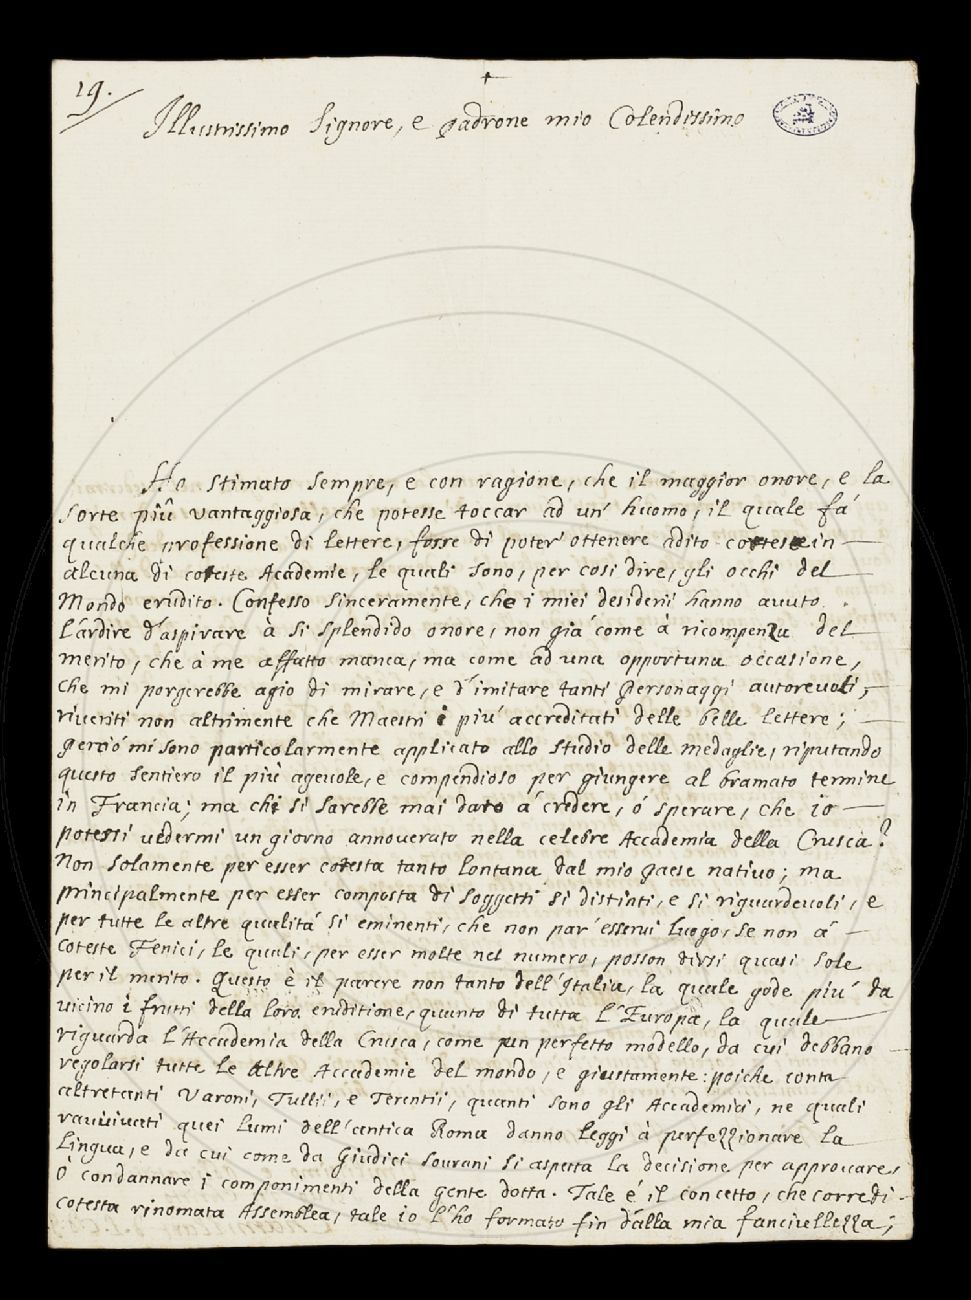 19.
Illustrissimo Signore, e padrone mio Colendissimo
Ho stimato sempre, e con ragione, che il maggior onore, e la
sorte più vantaggiosa, che potesse toccar ad un' huomo, il quale fá
qualche professione di lettere, fosse di poter' ottenere adito cortese in
alcuna di coteste Academie, le quali sono, per così dire, gli occhi del
Mondo erudito. Confesso sinceramente, che i miei desiderii hanno avuto
l'ardire d'aspirare à si splendido onore, non già come à ricompenza del
merito, che à me affatto manca, ma come ad una opportuna occasione,
che mi porgerebbe agio di mirare, e d'imitare tanti personaggi autorevoli,
riveriti non altrimente che Maestri i piú accreditati delle belle lettere;
perciò mi sono particolarmente applicato allo studio delle medaglie, riputando
questo sentiero il più agevole, e compendioso per giungere al bramato termine
in Francia; ma chi si sarebbe mai dato á credere, ó sperare, che io
potessi vedermi un giorno annoverato nella celebre Accademia della Crusca?
Non solamente per esser cotesta tanto lontana dal mio paese nativo; ma
principalmente per esser composta di soggetti si distinti, e si riguardevoli, e
per tutte le altre qualitá si eminenti, che non par' esservi luogo, se non á
coteste Fenici, le quali, per esser molte nel numero, posson dirsi quasi sole
per il merito. Questo è il parere non tanto dell'Italia, la quale gode piú da
vicino i frutti della loro eruditione, quanto di tutta l'Europa, la quale
riguarda l'Accademia della Crusca, come un perfetto modello, da cui debbano
regolarsi tutte le Altre Accademie del mondo, e giustamente: poiche conta
altretanti Varoni, Tullii, e Terentii, quanti sono gli Accademici, ne quali
ravvivati quei lumi dell'antica Roma danno leggi à perfezzionare la
Lingua, e da cui come da Giudici sovrani si aspetta la decisione per approvare,
ò condannare i componimenti della gente dotta. Tale é il concetto, che corre di
cotesta rinomata Assemblea, tale io l'ho formato fin dalla mia fanciullezza;